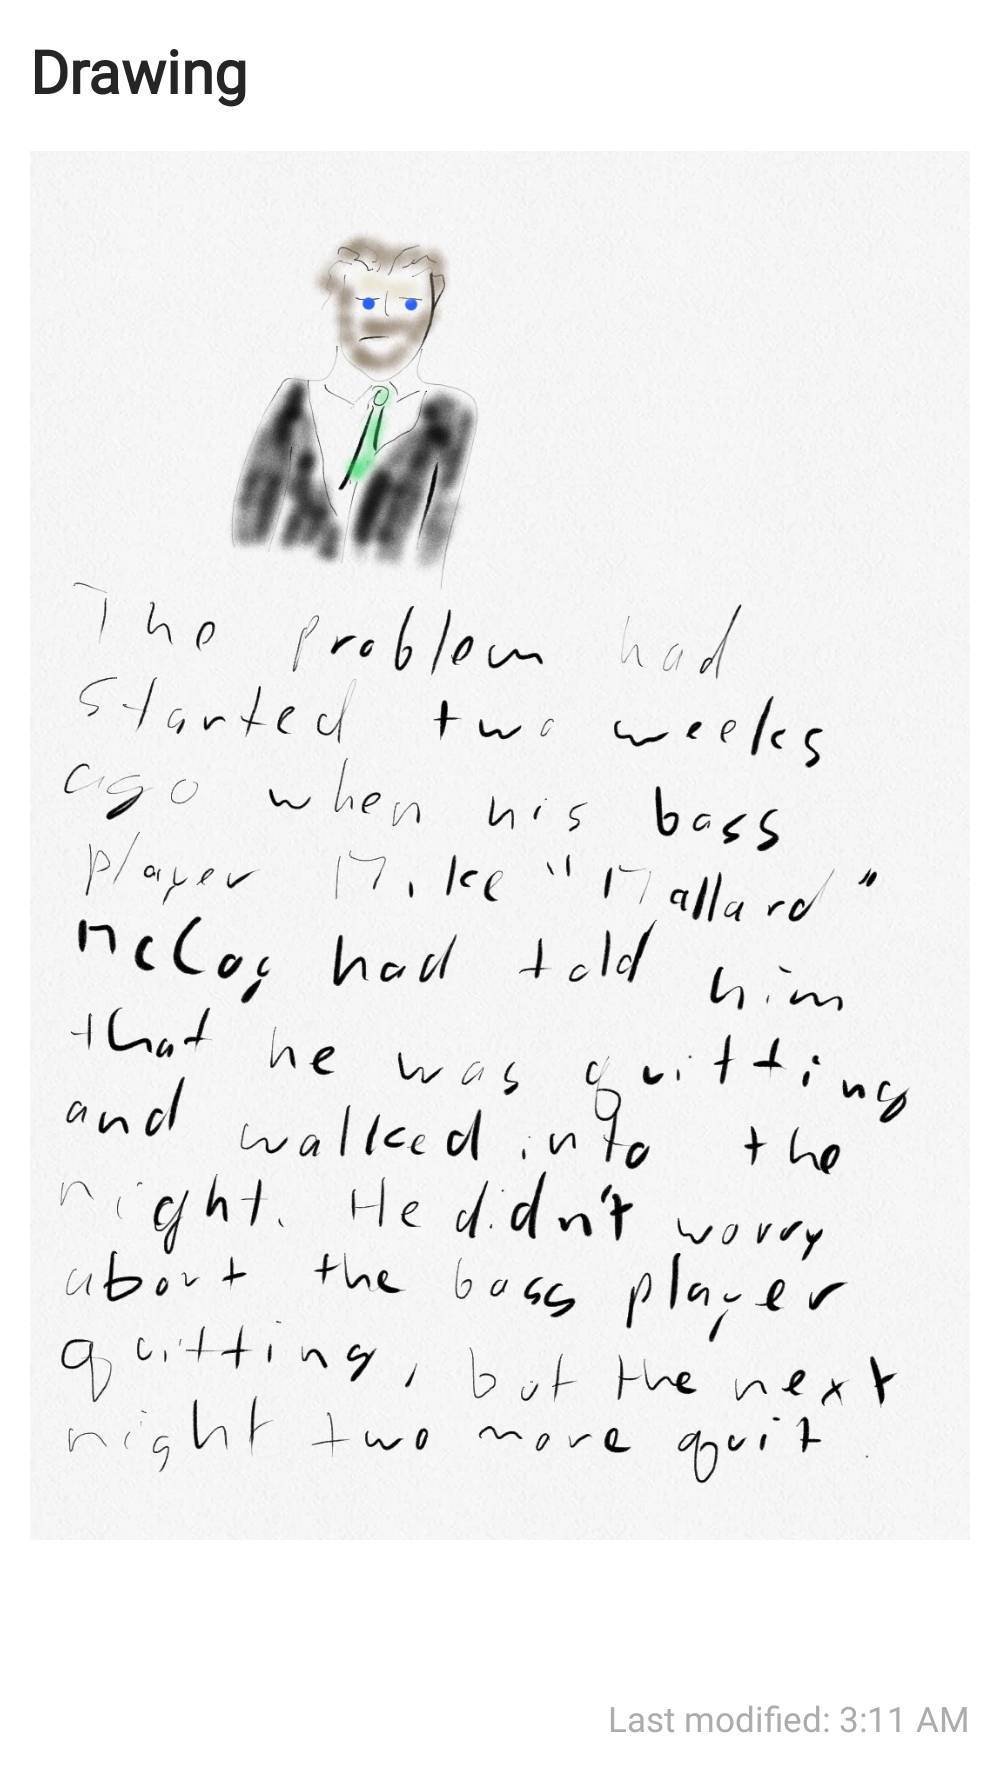 Drawing
The problem had
started two weeks
ago when his bass
player Mike "Mallard"
McCoy had told him
that he was quitting
and walked into the
night. He didn't worry
about the bass player
quitting, but the next
night two more quit.
Last modified: 3:11 AM